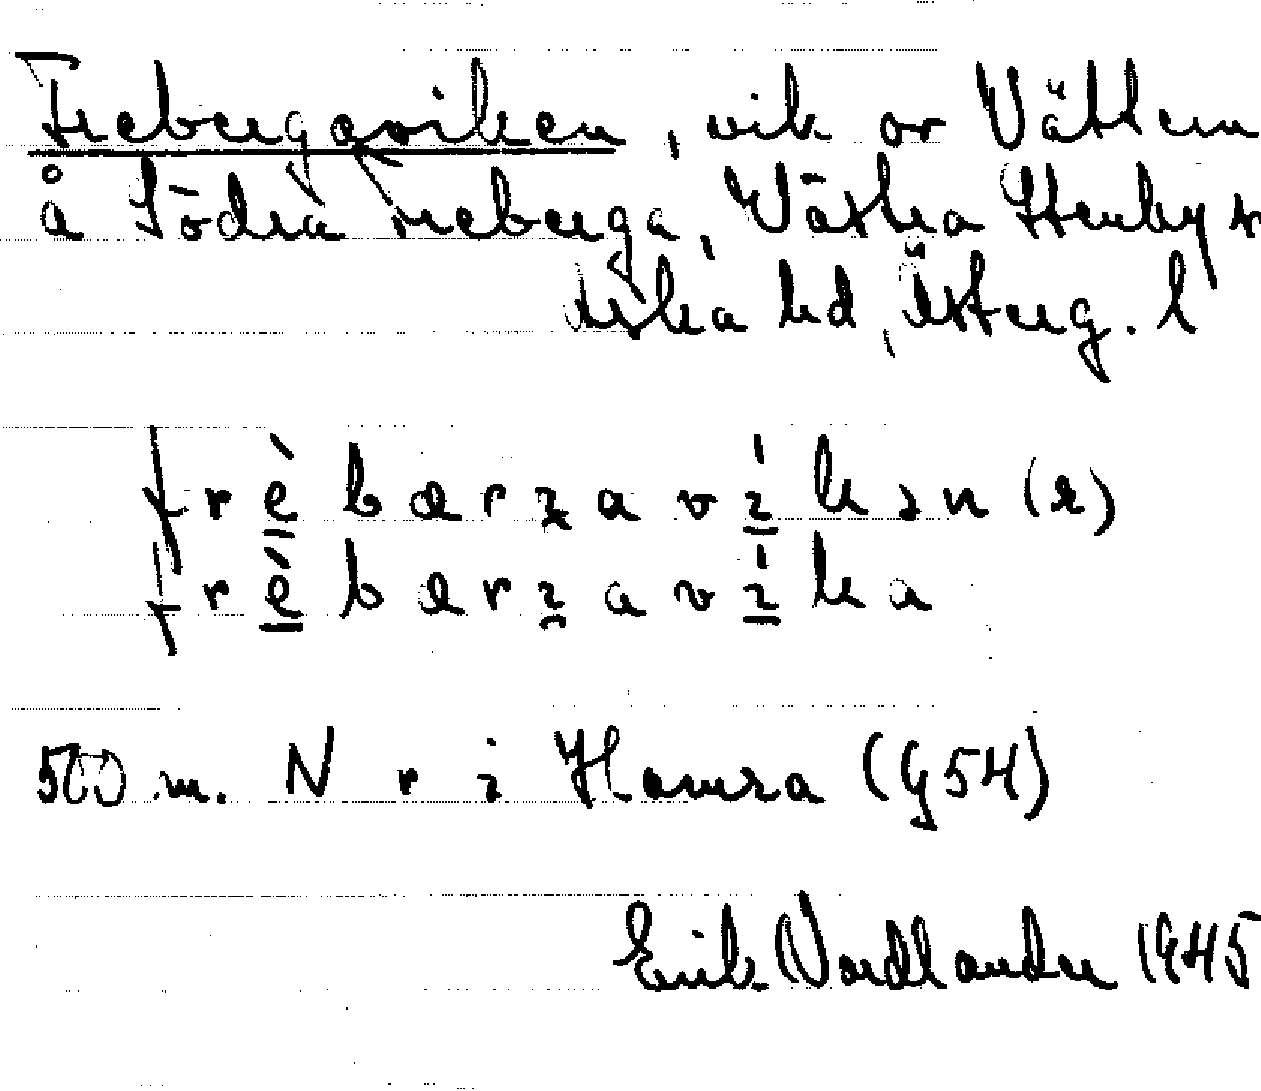 Frebergaviken, vik av Vättern
å Södra Freberga, Västra Stenby
hd, Österg. l
frèbærgavíkən(e)
frèbærgavíka
500 m. N r i Hamra (G54)
Erik Nordlander 1945